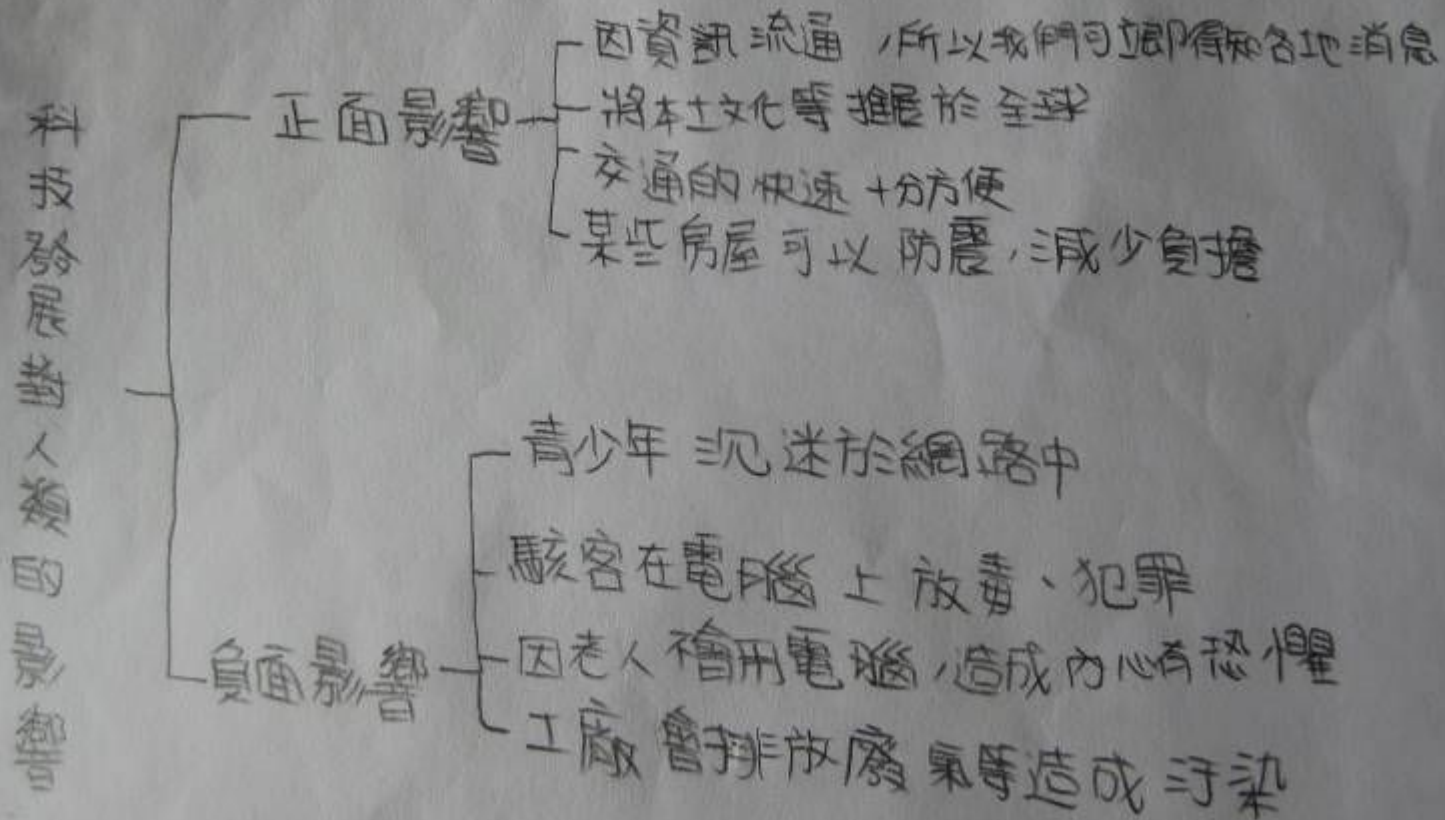 科技發展對人類的影響
正面影響
因資訊流通，所以我們可立即得知各地消息
將本土文化等推展於全球
交通的快速十分方便
某些房屋可以防震，減少負擔
負面影響
青少年沉迷於網路中
駭客在電腦上放毒、犯罪
因老人不會用電腦，造成內心有恐懼
工廠會排放廢氣等造成汙染